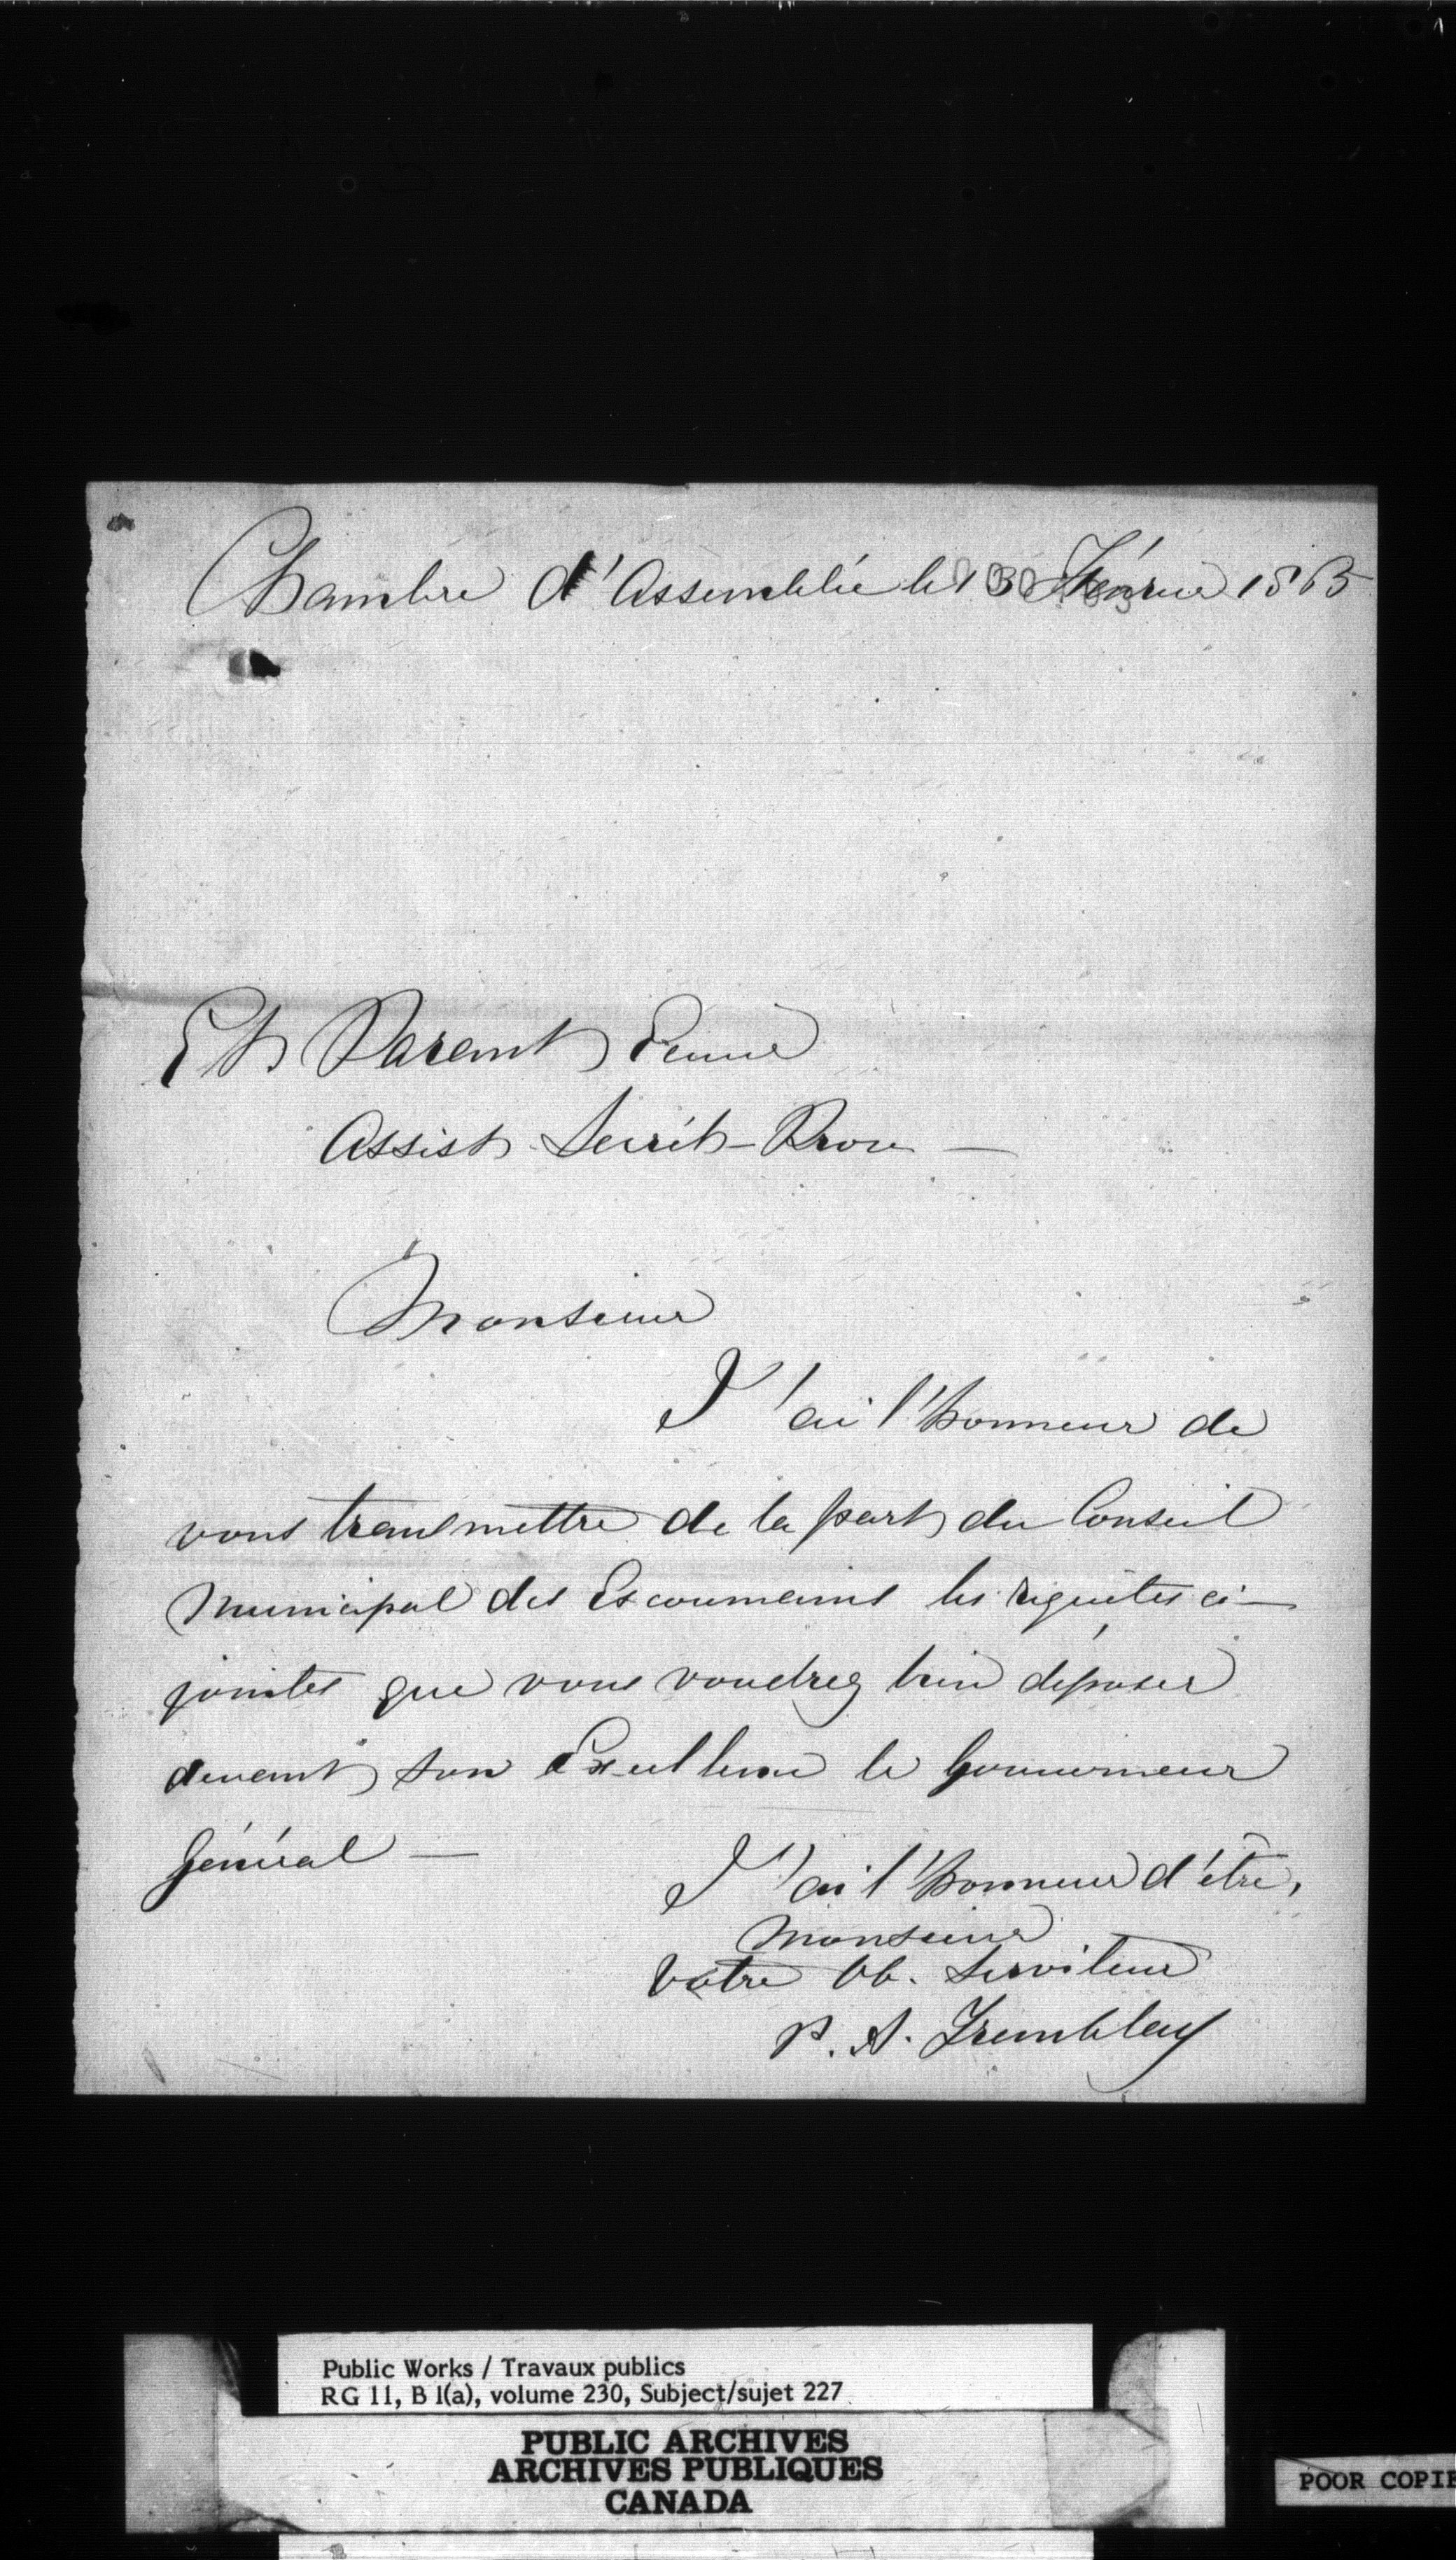 Chambre d'Assemblée le Février 1865
Et. Parent Ecuier
Assist Secrét-Prov. —
Monsieur
J'ai l'honneur de
vous transmettre de la part du Conseil
Municipal des Escoumains les requêtes ci-
jointes que vous voudrez bien déposer
devant Son Excellence le Gouverneur
Général —
J'ai l'honneur d'être,
Monsieur
Votre Ob. Serviteur
P. A. Tremblay
Public Works / Travaux publics
RG 11, B 1(a), volume 230, Subject/sujet 227
PUBLIC ARCHIVES
ARCHIVES PUBLIQUES
CANADA
POOR COPIE